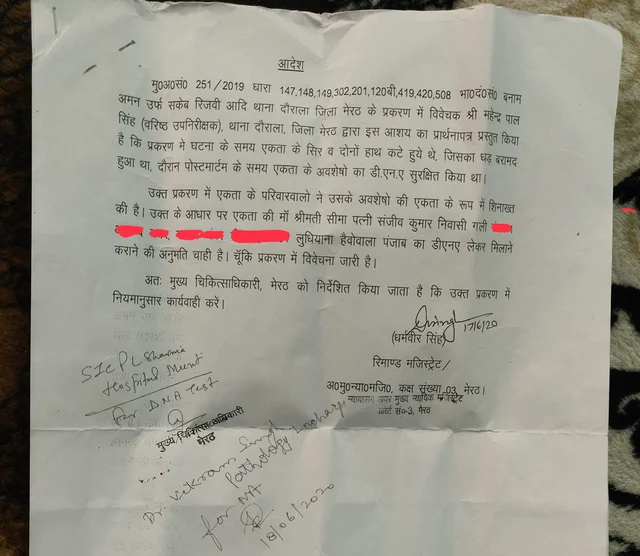 आदेश
मु0अ0सं0 251/2019 धारा 147,148,149,302,201,120बी,419,420,508 भा0दं0सं0 बनाम
अमन उर्फ सकेब रिजवी आदि थाना दौराला जिला मेरठ के प्रकरण में विवेचक श्री महेन्द्र पाल
सिंह (वरिष्ठ उपनिरीक्षक), थाना दौराला, जिला मेरठ द्वारा इस आशय का प्रार्थनापत्र प्रस्तुत किया
है कि प्रकरण मे घटना के समय एकता के सिर व दोनों हाथ कटे हुये थे, जिसका धड़ बरामद
हुआ था, दौरान पोस्टमार्टम के समय एकता के अवशेषो का डी.एन.ए सुरक्षित किया था।
उक्त प्रकरण में एकता के परिवारवालो ने उसके अवशेषो की एकता के रूप में शिनाख्त
की है। उक्त के आधार पर एकता की माँ श्रीमती सीमा पत्नी संजीव कुमार निवासी गली
लुधियाना हैवोवाला पंजाब का डीएनए लेकर मिलाने
कराने की अनुमति चाही है। चूँकि प्रकरण में विवेचना जारी है।
अतः मुख्य चिकित्साधिकारी, मेरठ को निर्देशित किया जाता है कि उक्त प्रकरण में
नियमानुसार कार्यवाही करें।
17/6/20
(धर्मवीर सिंह)
रिमाण्ड मजिस्ट्रेट/
अ0मु0न्या0मजि0, कक्ष संख्या 03, मेरठ।
न्यायालय अपर मुख्य न्यायिक मजिस्ट्रेट
कोर्ट सं0-3, मेरठ
SIC PL Sharma
Hospital
For DNA test
मुख्य चिकित्साधिकारी
मेरठ
Dr. Vikram Singh
Pathology Incharge
for NA
18/06/2020